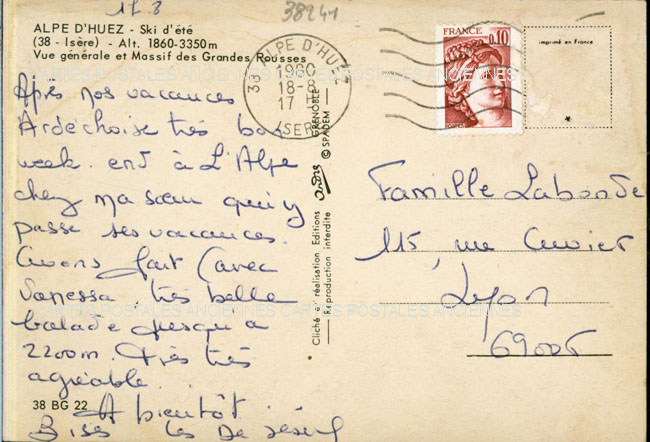 17 8
38241
ALPE D'HUEZ - Ski d'été
(38 - Isère) - Alt. 1860-3350m
Vue générale et Massif des Grandes Rousses
CARTES POSTALES ANCIENNES CARTES POSTALES ANCIENNES
Après nos vacances
Ardéchoise très bon
week. end à L'Alpe
chez ma sœur qui y
passe ses vacances.
Avons fait (avec
Vanessa) très belle
balade jusqu'a
2200m. Très très
agréable.
A bientôt
Bises Les De
38 BG 22
38 ALPE D'HUEZ
18-H
17 - 8
ISERE
GRENOBLE
© SPADEM
André
Cliché et réalisation Editions
Reproduction interdite
FRANCE
0,10
POSTES
imprimé en France
Famille Laborde
115, rue Cuvier
Lyon
69006